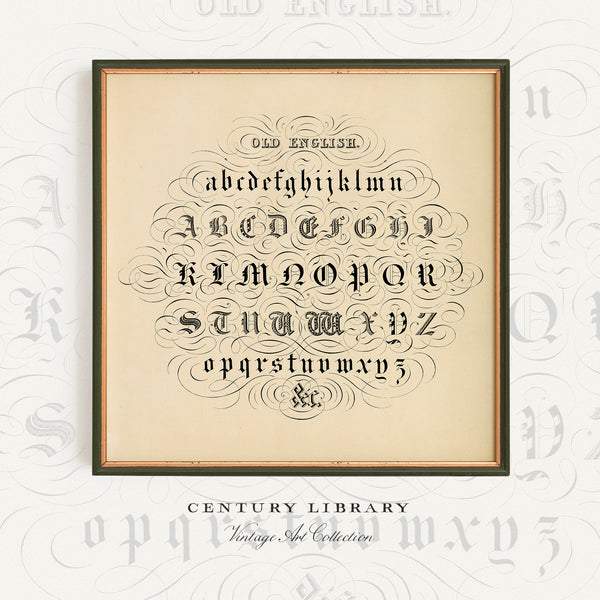 OLD ENGLISH.
OLD ENGLISH.
abcdefghijklmn
A B C D E F G H I
K L M N O P Q R
S T U V W X Y Z
opqrstuvwxyz
&c.
CENTURY LIBRARY
Vintage Art Collection
opqrstuvwxyz